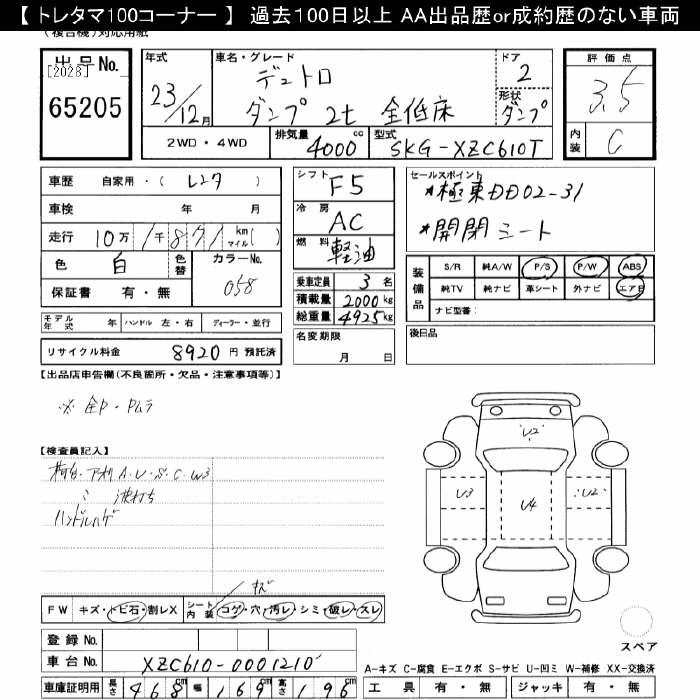 【 トレタマ100コーナー 】 過去100日以上 AA出品歴or成約歴のない車両
(複合機)対応用紙
出品No.
[2028]
65205
年式
23/12月
車名・グレード
デュトロ
ダンプ 2t 全低床
ドア
2
形状
ダンプ
評価点
3.5
内装
C
2WD・4WD
排気量
4000cc
型式
SKG-XZC610T
車歴 自家用・( レンタ )
車検 年 月
走行 10万1千871 km マイル( )
色 白 色替 カラーNo.
058
保証書 有・無
モデル年式 年 ハンドル 左・右 ディーラー・並行
リサイクル料金 8920 円 預託済
シフト
F5
冷房
AC
燃料
軽油
乗車定員 3 名
積載量 2000kg
総重量 4925kg
名変期限
月 日
セールスポイント
*極東DD02-31
*開閉シート
装備品
S/R 純A/W P/S P/W ABS
純TV 純ナビ 革シート 外ナビ エアB
ナビ型番:
後日品
【出品店申告欄(不良箇所・欠品・注意事項等)】
※ 全P・Pムラ
【検査員記入】
荷台・アオリ A・U・S・C・W3
〃 波打ち
ハンドルハゲ
キズ
FW キズ・トビ石・割レX シート内装 コゲ・穴・汚レ・シミ・破レ・スレ
登録 No.
車台 No. XZC610-0001210
車庫証明用 長さ 468cm 幅 169cm 高さ 196cm
U2
U3
U4
U2
スペア
A-キズ C-腐食 E-エクボ S-サビ U-凹ミ W-補修 XX-交換済
工具 有・無 ジャッキ 有・無